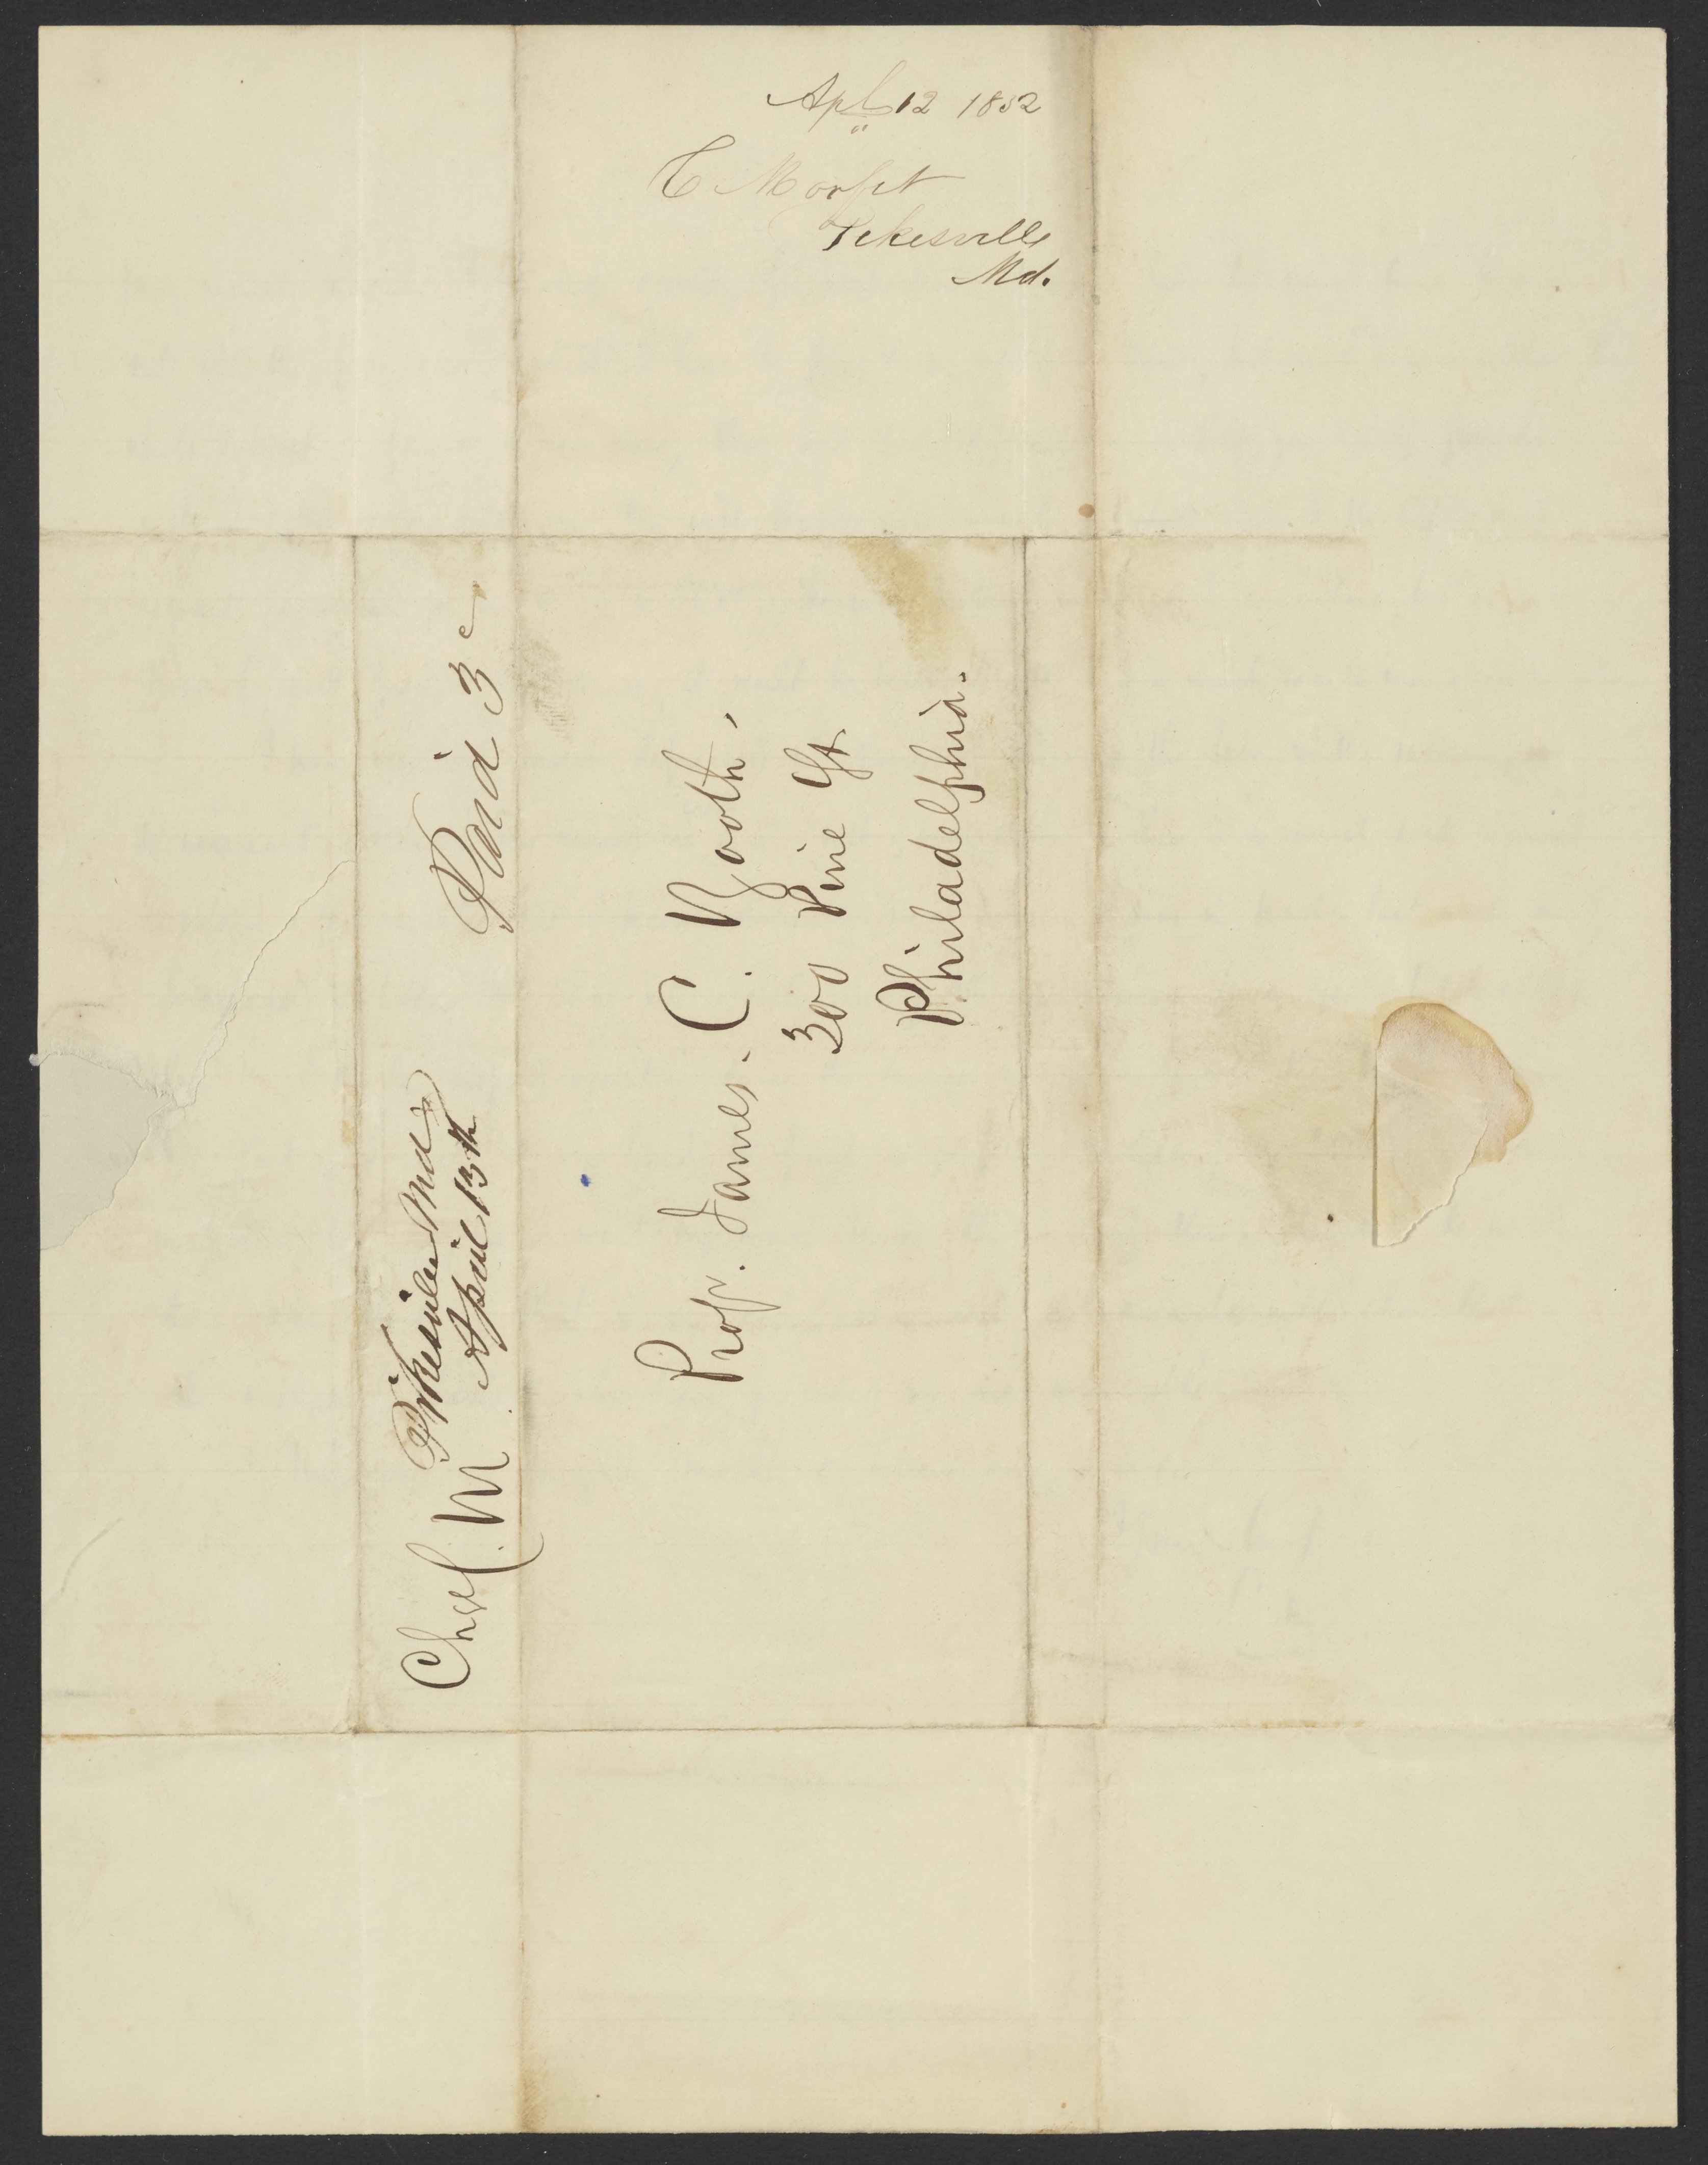 Apl 12 1852
C Morfit
Pikesville
Md.
Paid 3c
Pikesville Md
April 13th
Chs C. M.
Prof. James. C. Booth,
300 Pine St.
Philadelphia.